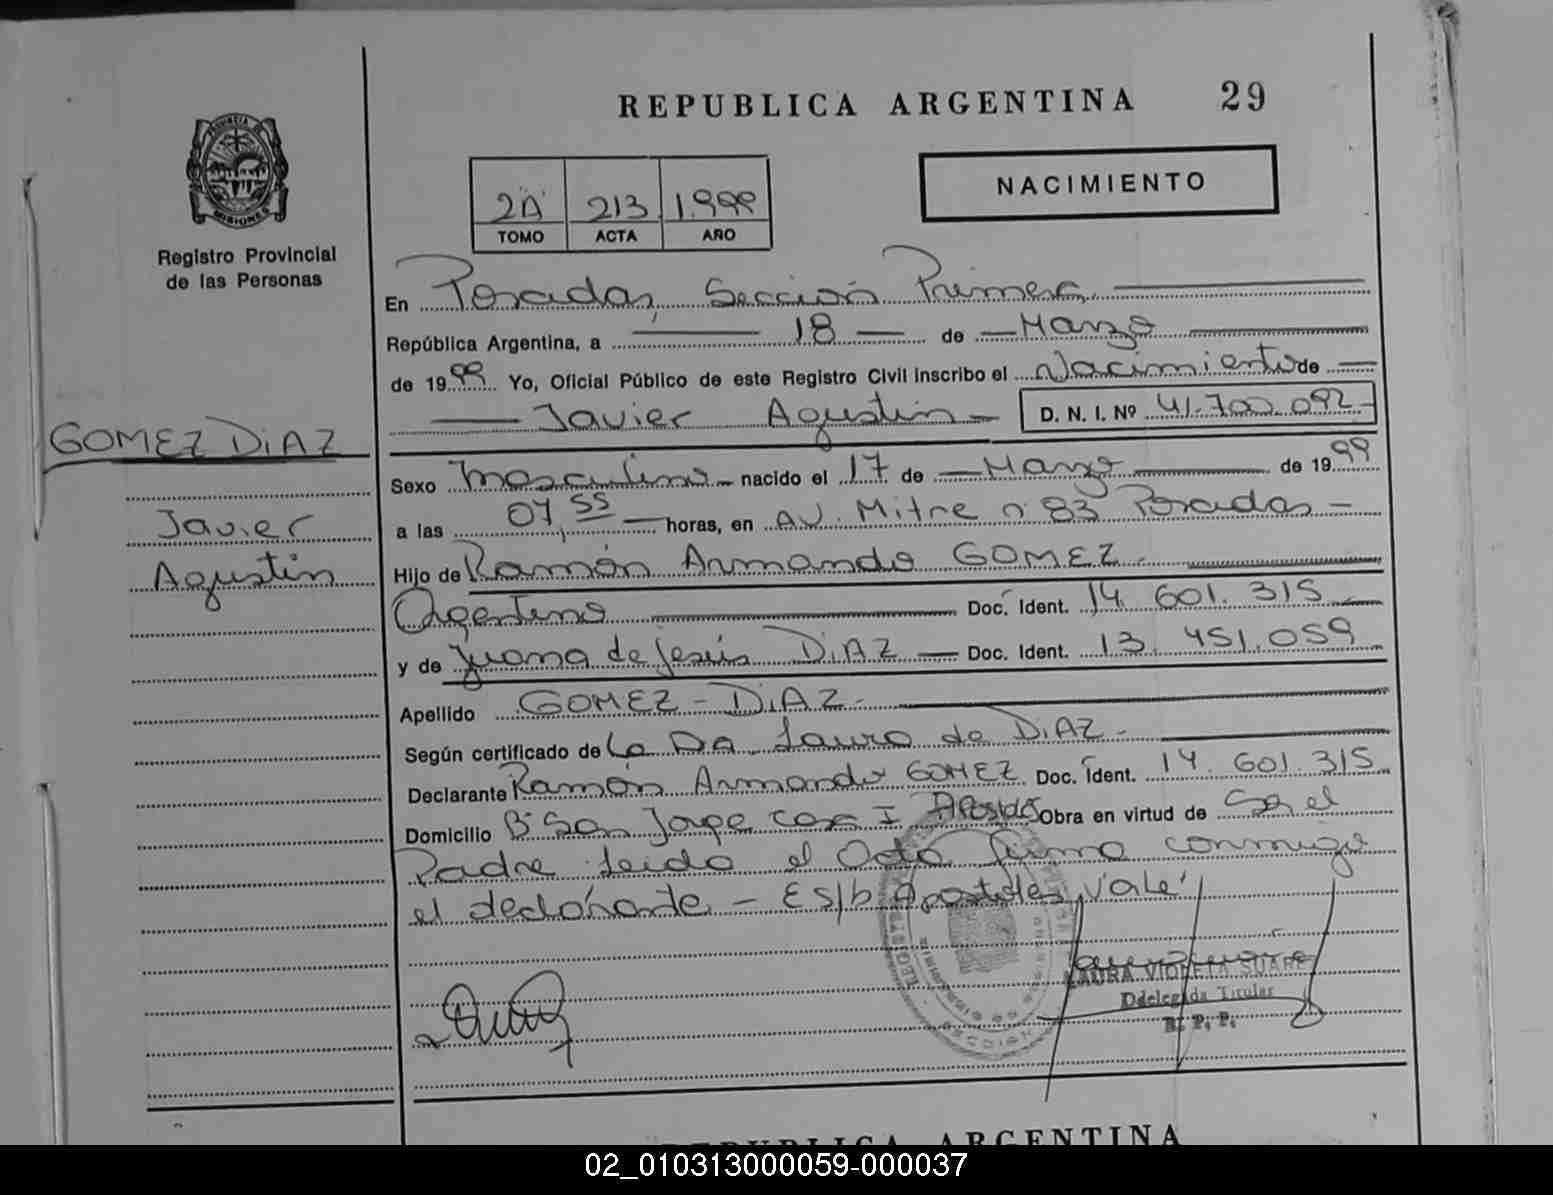 REPUBLICA ARGENTINA 29
PROVINCIA DE
MISIONES
Registro Provincial
de las Personas
2"A" 213 1.999
TOMO ACTA AÑO
NACIMIENTO
En Posadas, Sección Primera
República Argentina, a 18 de Marzo
de 1999 Yo, Oficial Público de este Registro Civil inscribo el Nacimiento de
Javier Agustin D. N. I. Nº 41.700.092
GOMEZ DiAZ
Javier
Agustin
Sexo Masculino nacido el 17 de Marzo de 1999
a las 07,55 horas, en AV. Mitre nº 83 Posadas
Hijo de Ramón Armando GOMEZ
Argentino Doc. Ident. 14 601.315
y de Juana de Jesús DiAZ Doc. Ident. 13.451.059
Apellido GOMEZ - DiAZ
Según certificado de La Dra. Laura de DiAZ
Declarante Ramón Armando GOMEZ Doc. Ident. 14.601.315
Domicilio Bº San Jorge casa I Apostoles Obra en virtud de Ser el
Padre Leido el Acta firma conmigo
el declarante - ES/b, Apostoles, Vale
LAURA VIOLETA SUARE
Ddelegada Titular
R. P. P.
REPUBLICA ARGENTINA
02_010313000059-000037